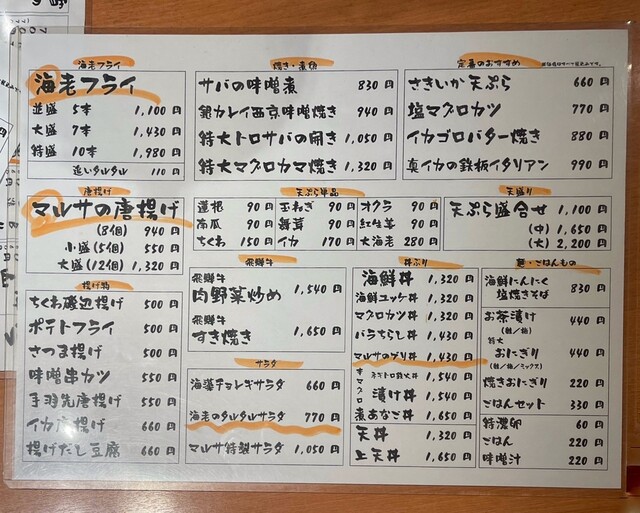 海老フライ
海老フライ
並盛 5本 1,100円
大盛 7本 1,430円
特盛 10本 1,980円
追いタルタル 110円
焼き・煮物
サバの味噌煮 830円
銀カレイ西京味噌焼き 940円
特大トロサバの開き 1,050円
特大マグロカマ焼き 1,320円
定番のおすすめ
さきいか天ぷら 660円
塩マグロカツ 770円
イカゴロバター焼き 880円
真イカの鉄板イタリアン 990円
唐揚げ
マルサの唐揚げ
(8個) 940円
小盛(5個) 550円
大盛(12個) 1,320円
天ぷら単品
蓮根 90円 玉ねぎ 90円 オクラ 90円
南瓜 90円 舞茸 90円 紅生姜 90円
ちくわ 150円 イカ 170円 大海老 280円
天盛り
天ぷら盛合せ 1,100円
(中) 1,650円
(大) 2,200円
揚げ物
ちくわ磯辺揚げ 500円
ポテトフライ 500円
さつま揚げ 500円
味噌串カツ 550円
手羽先唐揚げ 550円
イカ唐揚げ 660円
揚げだし豆腐 660円
飛騨牛
飛騨牛
肉野菜炒め 1,540円
飛騨牛
すき焼き 1,650円
サラダ
海藻チョレギサラダ 660円
海老のタルタルサラダ 770円
マルサ特製サラダ 1,050円
丼ぶり
海鮮丼 1,320円
海鮮ユッケ丼 1,320円
マグロカツ丼 1,320円
バラちらし丼 1,430円
マルサのブリ丼 1,430円
マグロ ネギトロ鉄火丼 1,540円
漬け丼 1,540円
煮あなご丼 1,650円
天丼 1,320円
上天丼 1,650円
麺・ごはんもの
海鮮にんにく
塩焼きそば 830円
お茶漬け 440円
(鮭/梅)
特大
おにぎり 440円
(鮭/梅/ミックス)
焼きおにぎり 220円
ごはんセット 330円
特濃卵 60円
ごはん 220円
味噌汁 220円